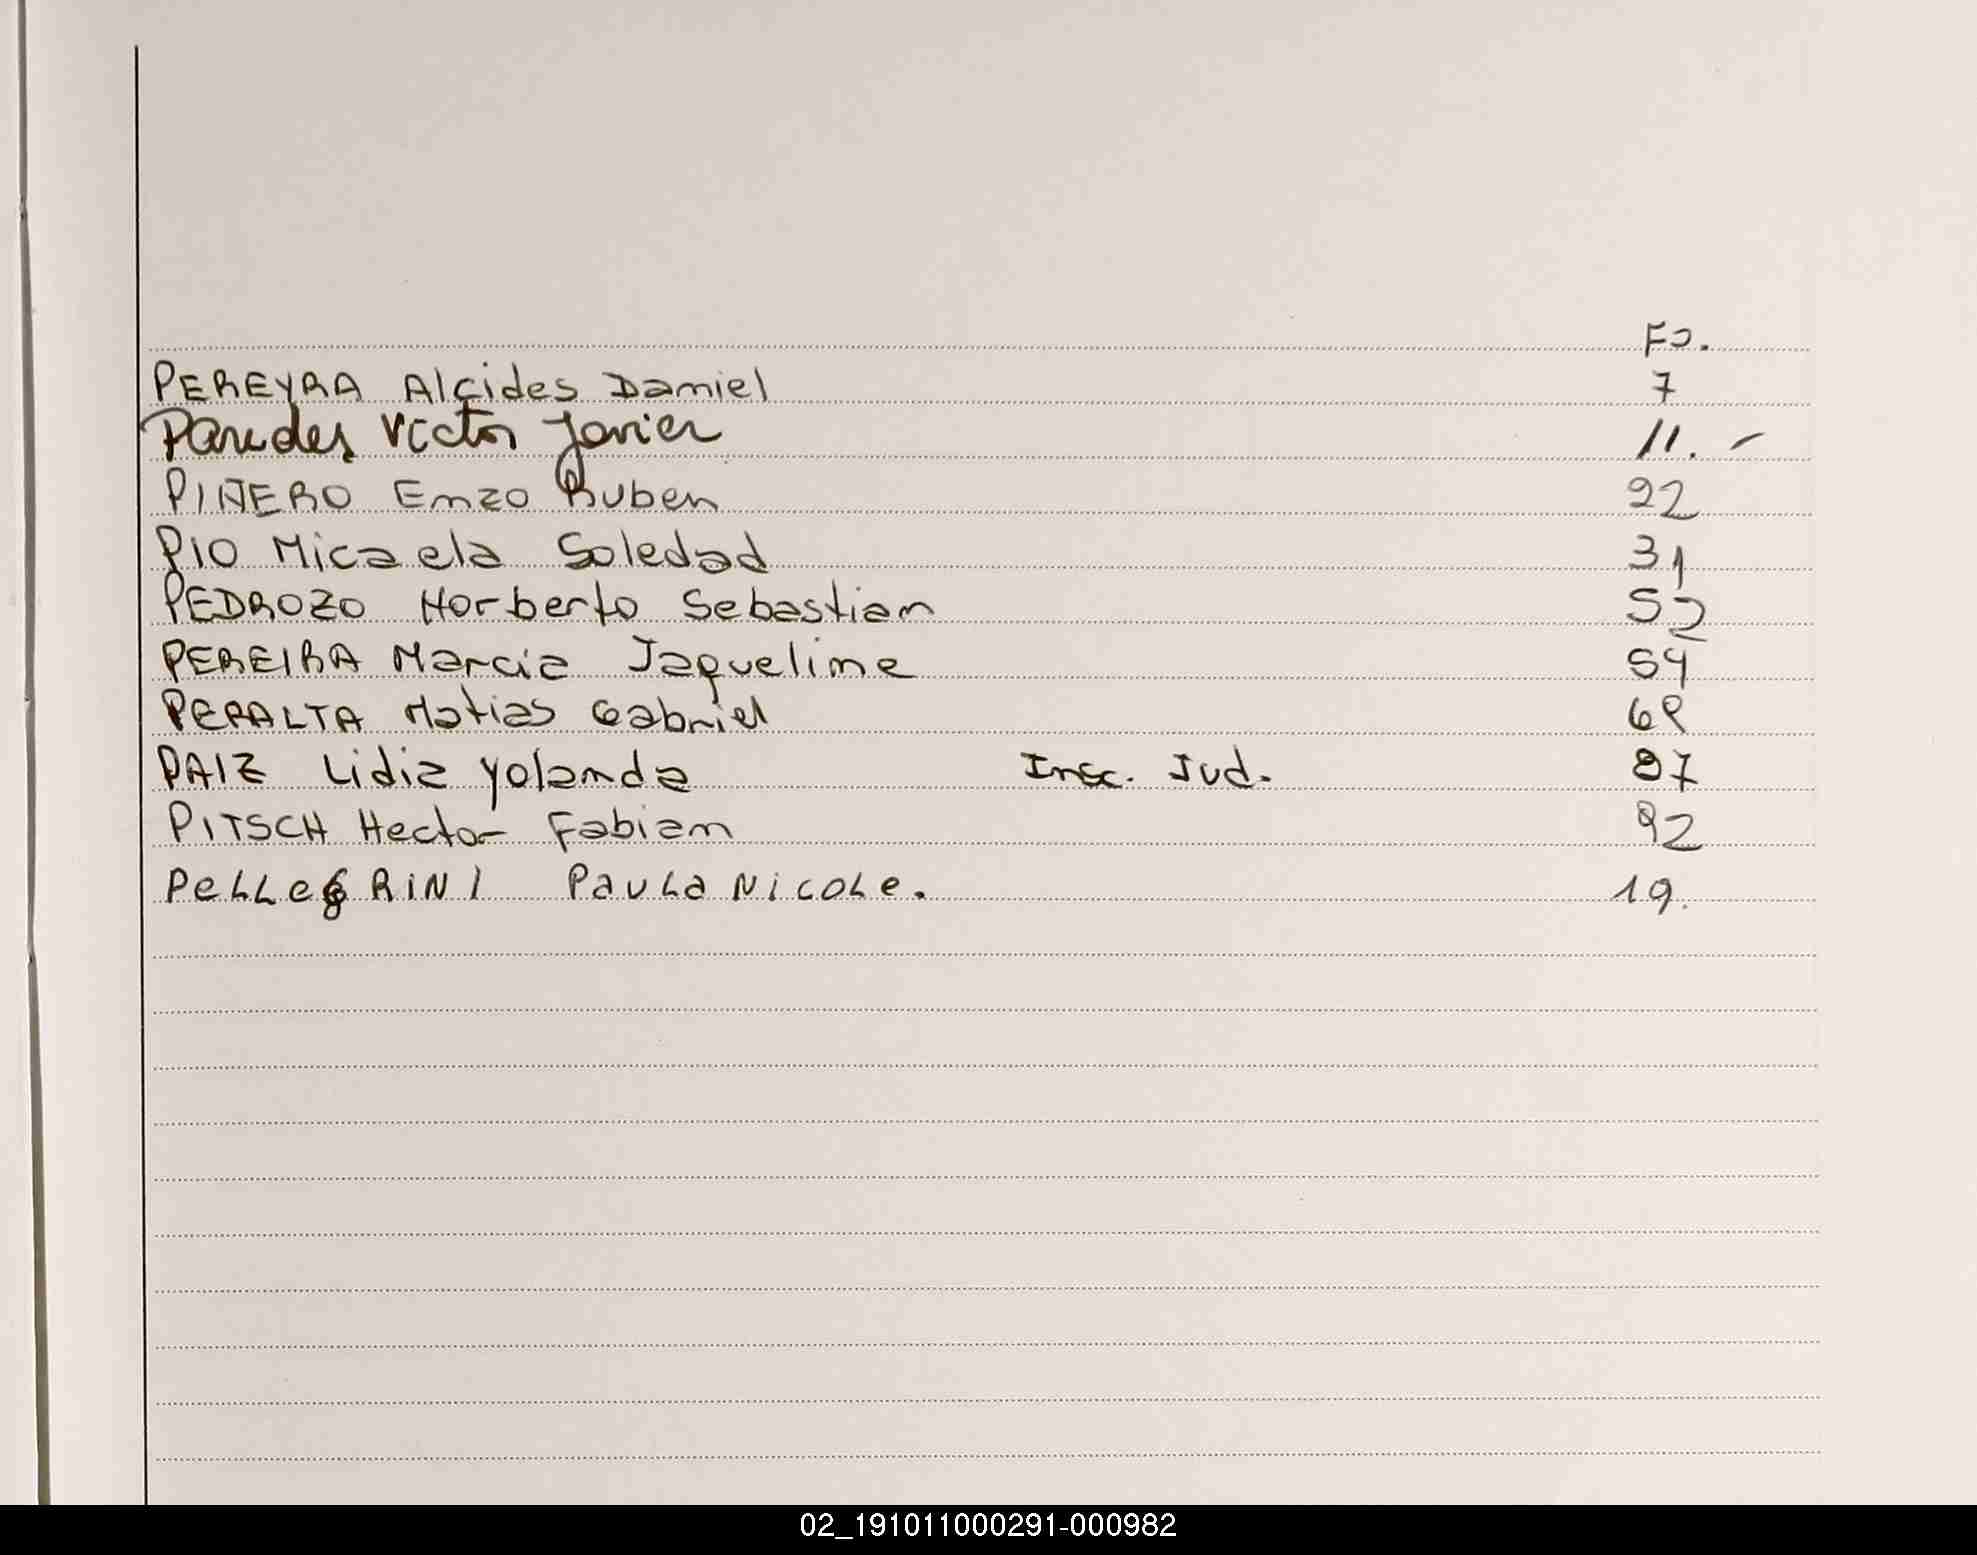 Fo.
PEREYRA Alcides Daniel 7
Paredes Victor Javier 11. -
PIÑERO Enzo Ruben 22
PIO Micaela Soledad 31
PEDROZO Norberto Sebastian 52
PEREIRA Marcia Jaqueline 54
PERALTA Matias Gabriel 68
PAIZ Lidia Yolanda Insc. Jud. 87
PITSCH Hector Fabian 92
PELLEGRINI PAULA NICOLE. 19.
02_191011000291-000982